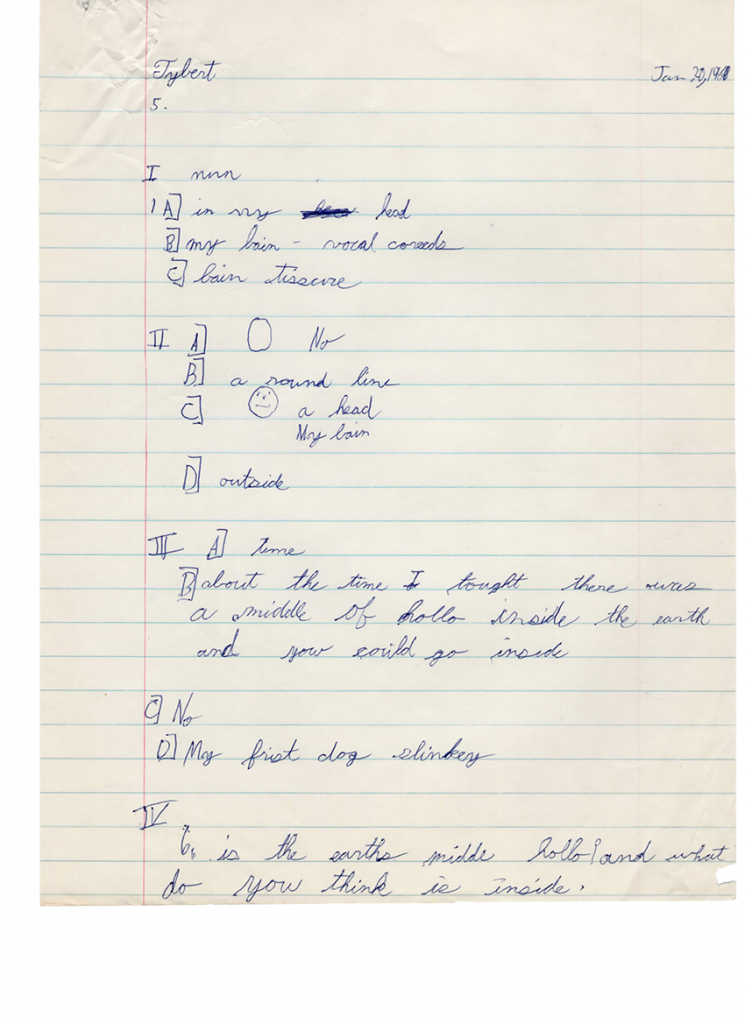 Tybert Jan 20, 19
5.
I nnn
1 A] in my head
B] my bain - vocal coreds
C] bain tissure
II A] No
B] a round line
C] a head
My bain
D] outside
III A] time
B] about the time I tought there
a middle of hollo inside the earth
and you could go inside
C] No
D] My frist dog slinkey
IV
is the earths midde hollo? and what
do you think is inside.